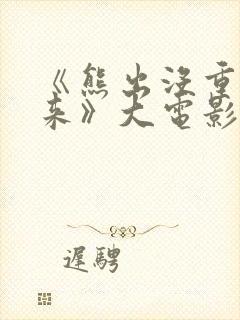 《熊出没重
来》大电影
遲聘